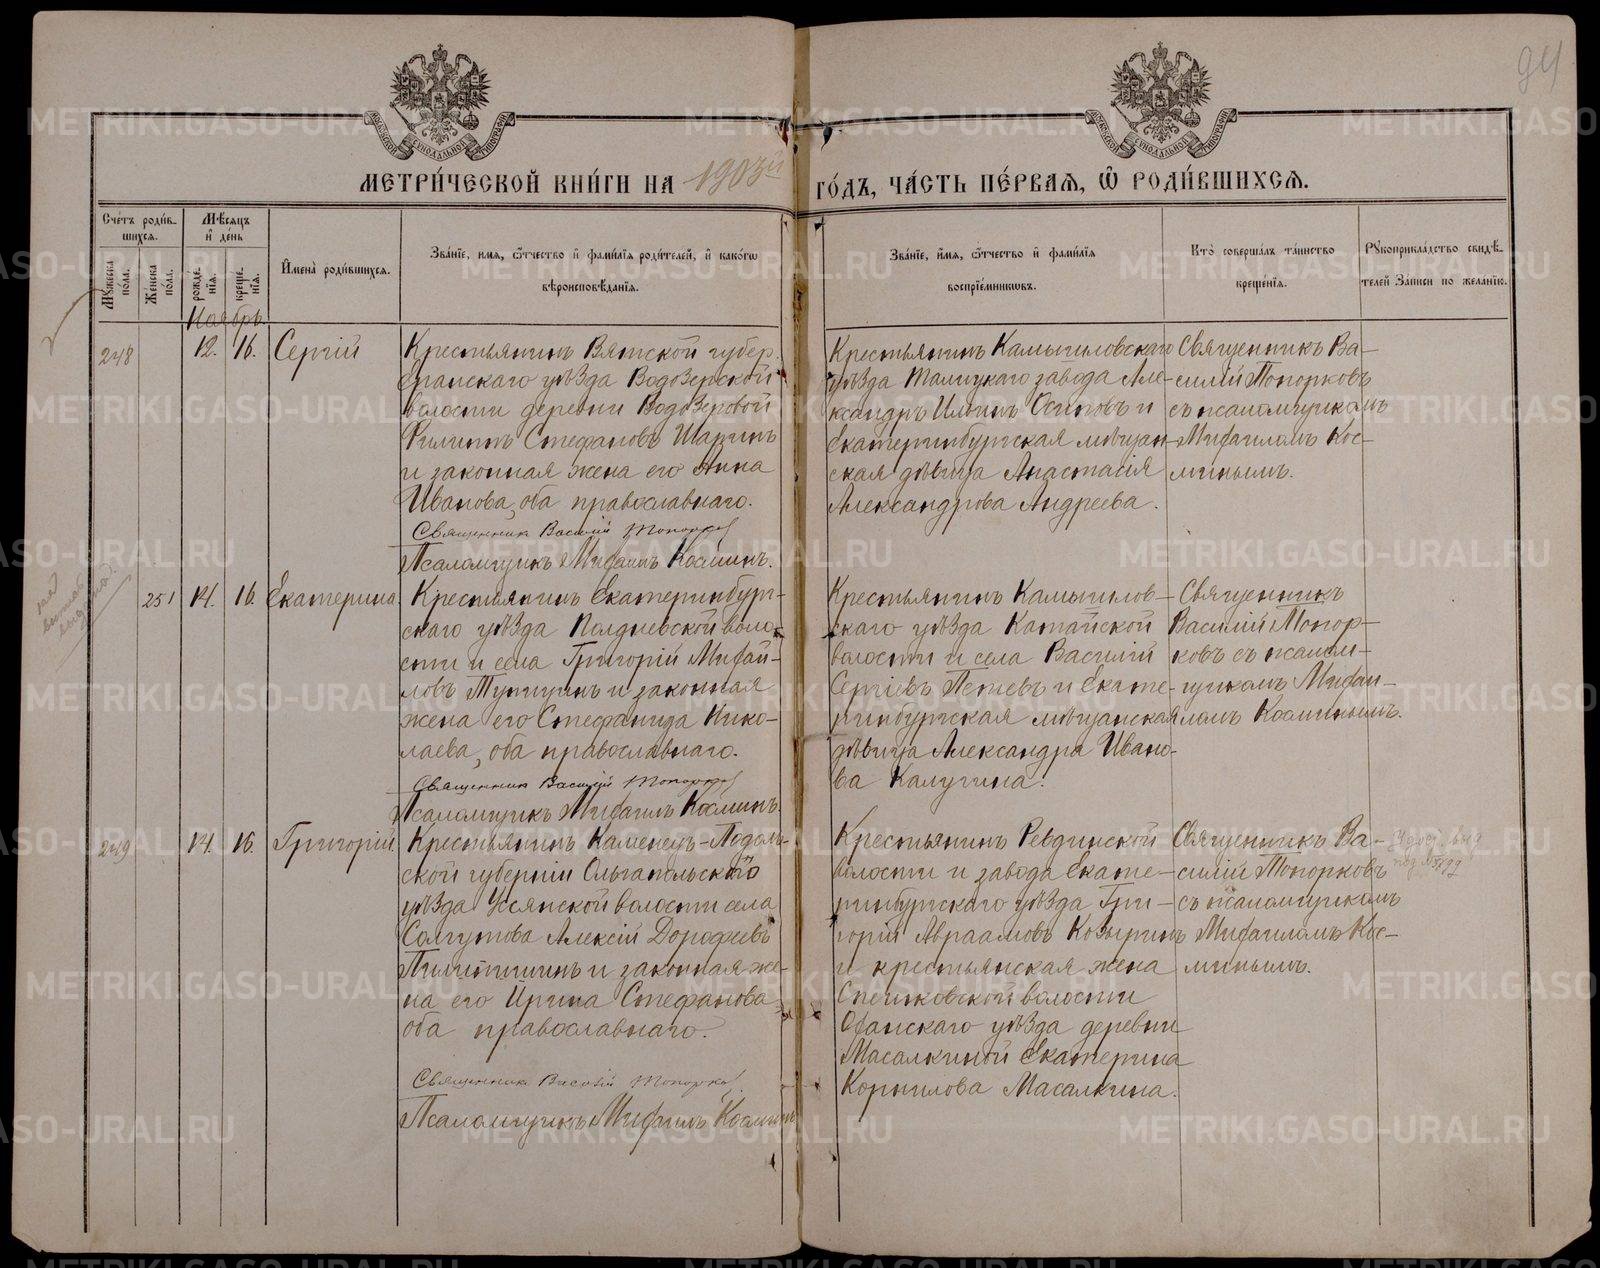 94
МЕТРИ́ЧЕСКОЙ КНИ́ГИ НА 1903й ГО́ДЪ, ЧА́СТЬ ПЕ́РВАЯ, Ѽ РОДИ́ВШИХСЯ.
Сче́тъ роди́в-
шихся.
Му́жеска по́ла.
Же́нска по́ла.
Мѣ́сяцъ
и де́нь
рожде́нія.
креще́нія.
Имена̀ роди́вшихся.
Зва́ніе, имя, о́тчество и фами́лія роди́телей, и како́гѡ
вѣроисповѣ́данія.
Зва́ніе, имя, о́тчество и фами́лія
воспріе́мниковъ.
Кто̀ соверша́лъ та́инство
креще́нія.
Рукоприкла́дство свидѣ́-
телей за́писи по жела́нію.
Ноябрь.
248 12. 16. Сергій
Крестьянинъ Вятской губер.
уѣзда Водозерской
волости деревни Водозеровой
Филиппъ Стефановъ Шаринъ
и законная жена его Анна
Иванова, оба православнаго.
Священник Василий Топорков
Псаломщикъ Михаилъ Косминъ.
Крестьянинъ Камышловскаго
уѣзда Талицкаго завода Але-
ксандръ Ильинъ Осиповъ и
Екатеринбургская мѣщан-
ская дѣвица Анастасія
Александрова Андреева.
Священникъ Ва-
силій Топорковъ
съ псаломщикомъ
Михаиломъ Кос-
минымъ.
251 14. 16. Екатерина
Крестьянинъ Екатеринбург-
скаго уѣзда Полдневской воло-
сти и села Григорій Михай-
ловъ и законная
жена его Стефанида Нико-
лаева, оба православнаго.
Священник Василий Топорков
Псаломщикъ Михаилъ Косминъ.
Крестьянинъ Камышлов-
скаго уѣзда Катайской
волости и села Василій
Сергѣевъ и Екате-
ринбургская мѣщанская
дѣвица Александра Ивано-
ва Калугина.
Священникъ
Василій Топор-
ковъ съ псалом-
щикомъ Михаи-
ломъ Косминымъ.
249 14. 16. Григорій
Крестьянинъ Каменецъ-Подоль-
ской губерніи Ольгопольскаго
уѣзда волости села
Алексій Дорофеевъ
и законная же-
на его Ирина Стефанова
оба православнаго.
Священник Василий Топорков
Псаломщикъ Михаилъ Косминъ
Крестьянинъ Ревдинской
волости и завода Екате-
ринбургскаго уѣзда Гри-
горій Авраамовъ Козыринъ
и крестьянская жена
волости
Оханскаго уѣзда деревни
Масалкиной Екатерина
Корнилова Масалкина.
Священникъ Ва-
силій Топорковъ
съ псаломщикомъ
Михаиломъ Кос-
минымъ.
METRIKI.GASO-URAL.RU